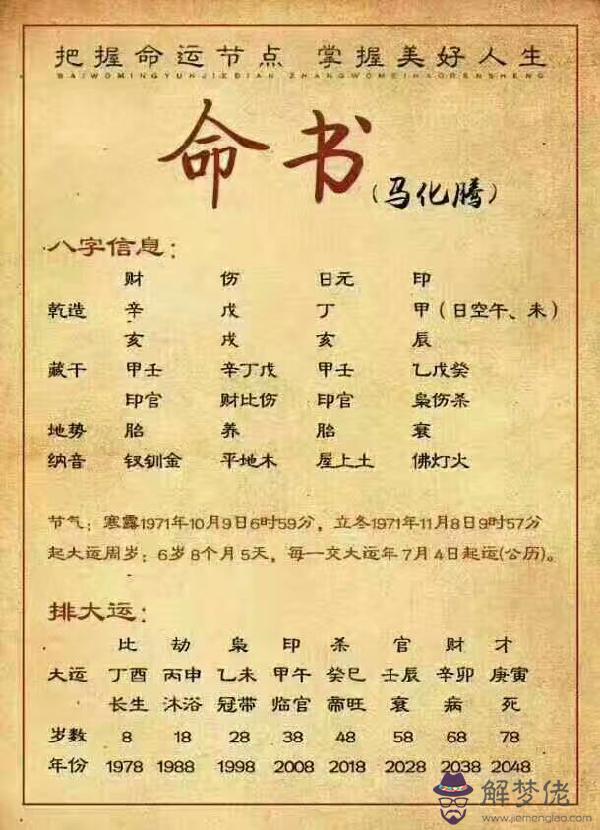 把握命运节点 掌握美好人生
BAIWOMINGYUNJIEDIAN ZHANGWOMEIHAORENSHENG
命书
(马化腾)
八字信息：
财 伤 日元 印
乾造 辛 戊 丁 甲（日空午、未）
亥 戌 亥 辰
藏干 甲壬 辛丁戊 甲壬 乙戊癸
印官 财比伤 印官 枭伤杀
地势 胎 养 胎 衰
纳音 钗钏金 平地木 屋上土 佛灯火
节气：寒露1971年10月9日6时59分，立冬1971年11月8日9时57分
起大运周岁：6岁8个月5天，每一交大运年7月4日起运(公历)。
排大运：
比 劫 枭 印 杀 官 财 才
大运 丁酉 丙申 乙未 甲午 癸巳 壬辰 辛卯 庚寅
长生 沐浴 冠带 临官 帝旺 衰 病 死
岁数 8 18 28 38 48 58 68 78
年份 1978 1988 1998 2008 2018 2028 2038 2048
解梦佬
www.jiemenglao.com